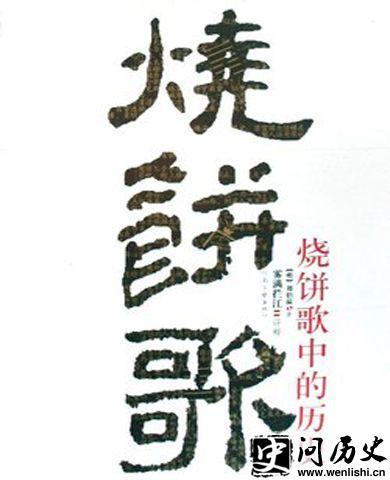 燒餅歌
烧饼歌中的历
雾满拦江
问历史
www.wenlishi.cn